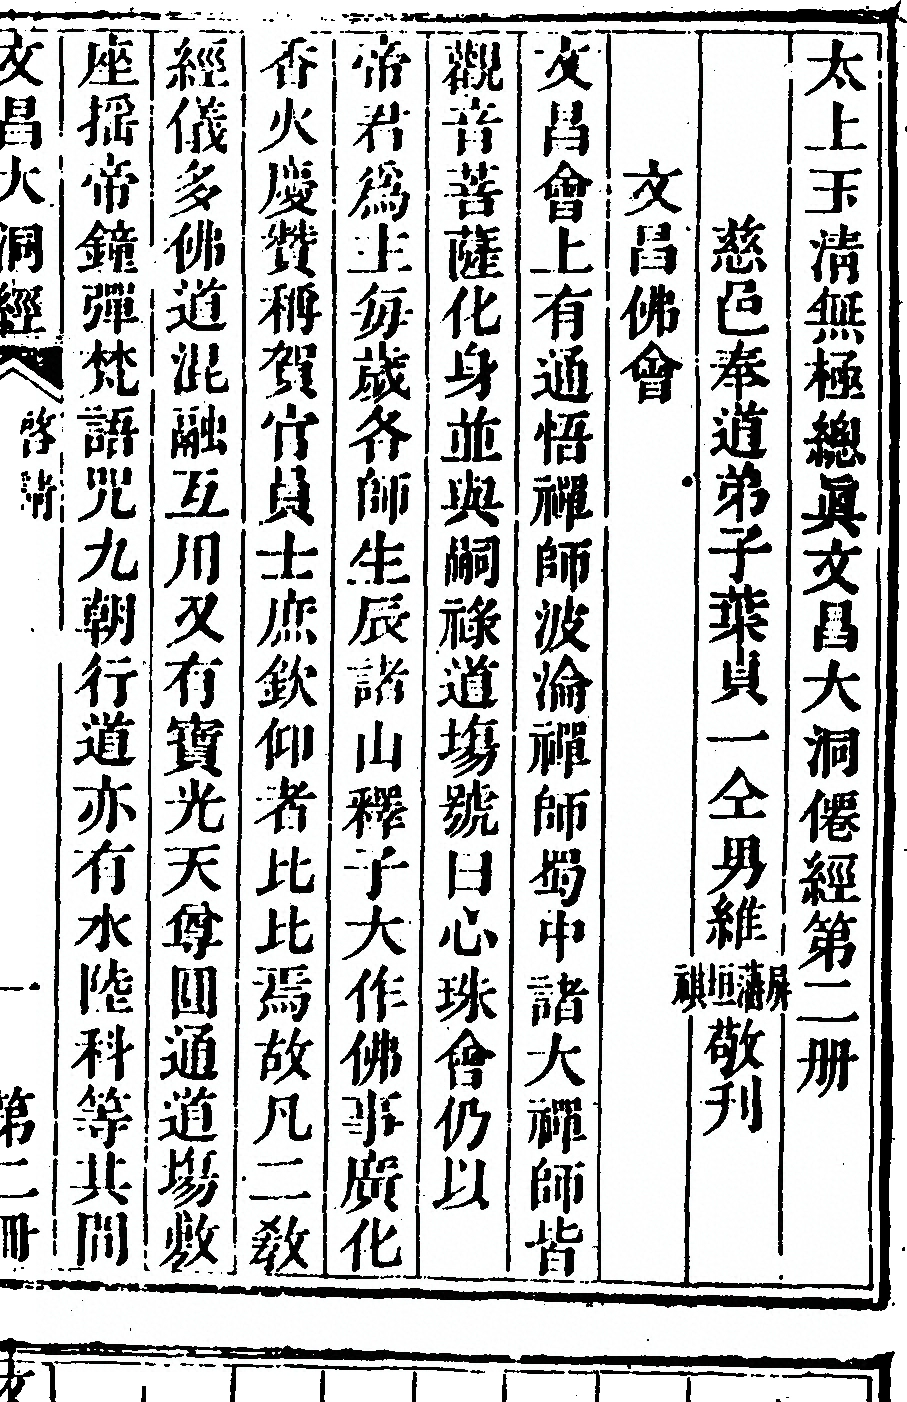 太上玉清無極總眞文昌大洞僊經第二册
慈邑奉道弟子葉貞一仝男維屏藩垣祺敬刋
文昌佛會
文昌會上有通悟禪師波淪禪師蜀中諸大禪師皆
觀音菩薩化身並與嗣祿道塲號曰心珠會仍以
帝君爲主每歲各師生辰諸山釋子大作佛事廣化
香火慶贊稱賀官員士庶欽仰者比比焉故凡二教
經儀多佛道混融互用又有寶光天尊圓通道塲敷
座揺帝鐘彈梵語咒九朝行道亦有水陸科等其間
文昌大洞經 啓請 一 第二册